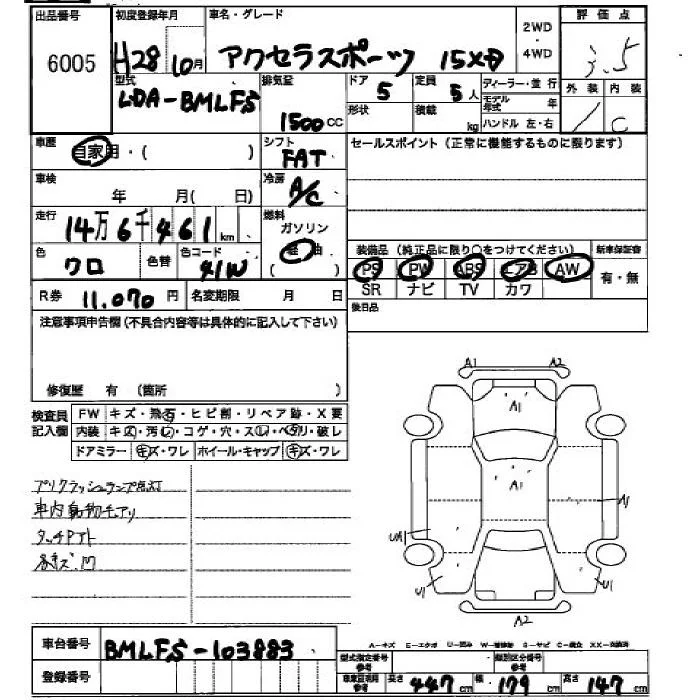 出品番号 初度登録年月 車名・グレード 2WD・4WD 評価点
6005 H28 10月 アクセラスポーツ 15XD 3.5
型式 LDA-BMLFS 排気量 1500cc ドア 5 形状 定員 5人 積載 kg ディーラー・並行 モデル年式 年 ハンドル 左・右 外装 内装 C
車歴 自家用・( ) シフト FAT セールスポイント(正常に機能するものに限ります)
車検 年 月( 日) 冷房 A/C
走行 14万6千461km 燃料 ガソリン 軽油 ( )
色 クロ 色替 色コード 41W 装備品(純正品に限り○をつけてください) 新車保証書
PS PW ABS エアB AW 有・無
SR ナビ TV カワ
R券 11,070円 名変期限 月 日 後日品
注意事項申告欄(不具合内容等は具体的に記入して下さい)
修復歴 有 (箇所 )
検査員記入欄 FW キズ・飛石・ヒビ割・リペア跡・X要
内装 キズ・汚レ・コゲ・穴・スレ・ベタリ・破レ
ドアミラー キズ・ワレ ホイール・キャップ キズ・ワレ
プリクラッシュランプ点灯
車内動物毛アリ
タッチアト
各キズ.凹
A1 A2
A1
A1
A1
UA1
U1 U1
A2
車台番号 BMLFS-103883
A-キズ E-エクボ U-凹み W-補修跡 S-サビ C-腐食 XX-交換済
登録番号 型式指定番号参考 類別区分番号参考
車庫証明用参考 長さ 447cm 幅 179cm 高さ 147cm